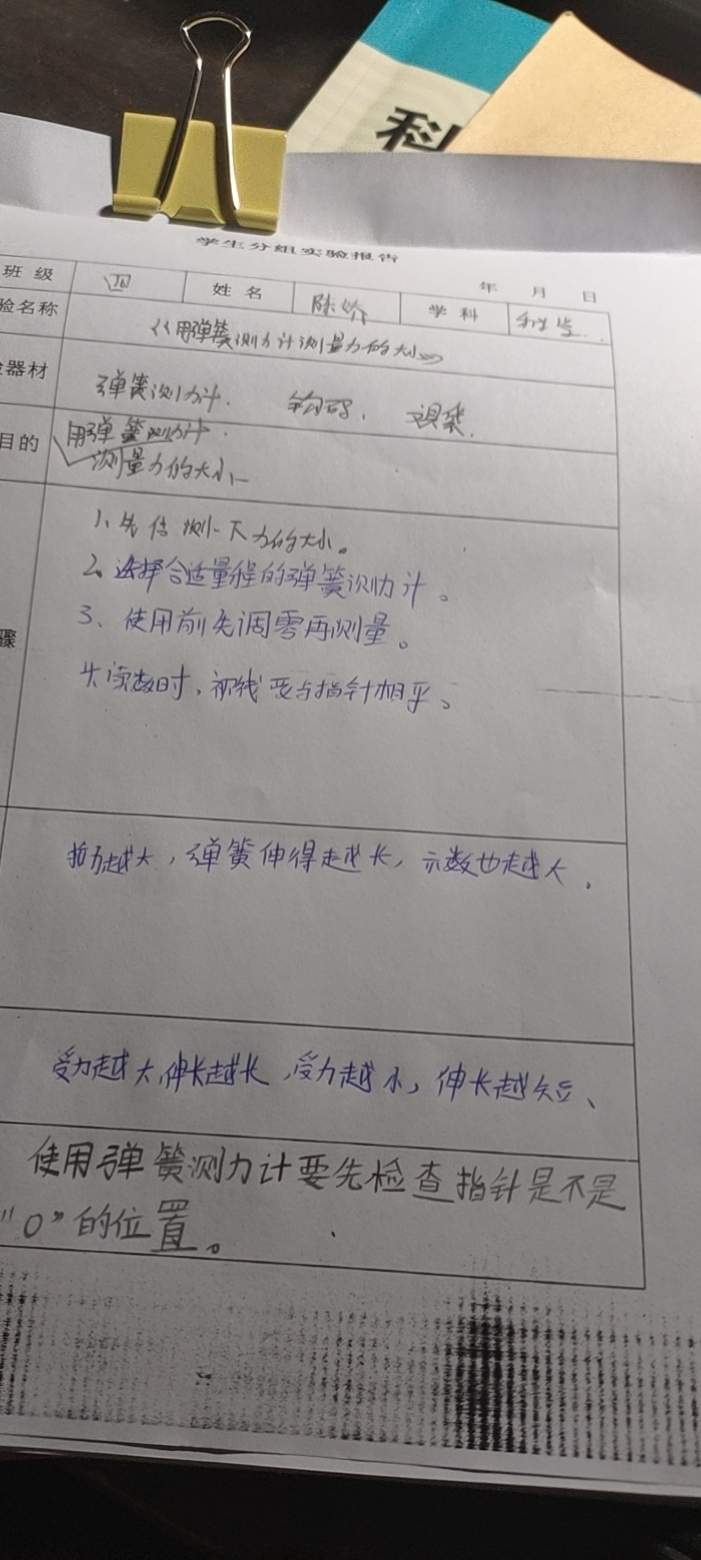 科
学生分组实验报告
年 月 日
班 级 四 姓 名 陈 学 科 科学
验名称 《用弹簧测力计测量力的大小》
器材 弹簧测力计. 钩码.
目的 用弹簧测力计.
测量力的大小
1、先估测一下力的大小。
2、选择合适量程的弹簧测力计。
3、使用前先调零再测量。
骤
4、读数时,视线要与指针相平。
拉力越大,弹簧伸得越长,示数也越大.
受力越大,伸长越长,受力越小,伸长越短、
使用弹簧测力计要先检查指针是不是
"0"的位置。